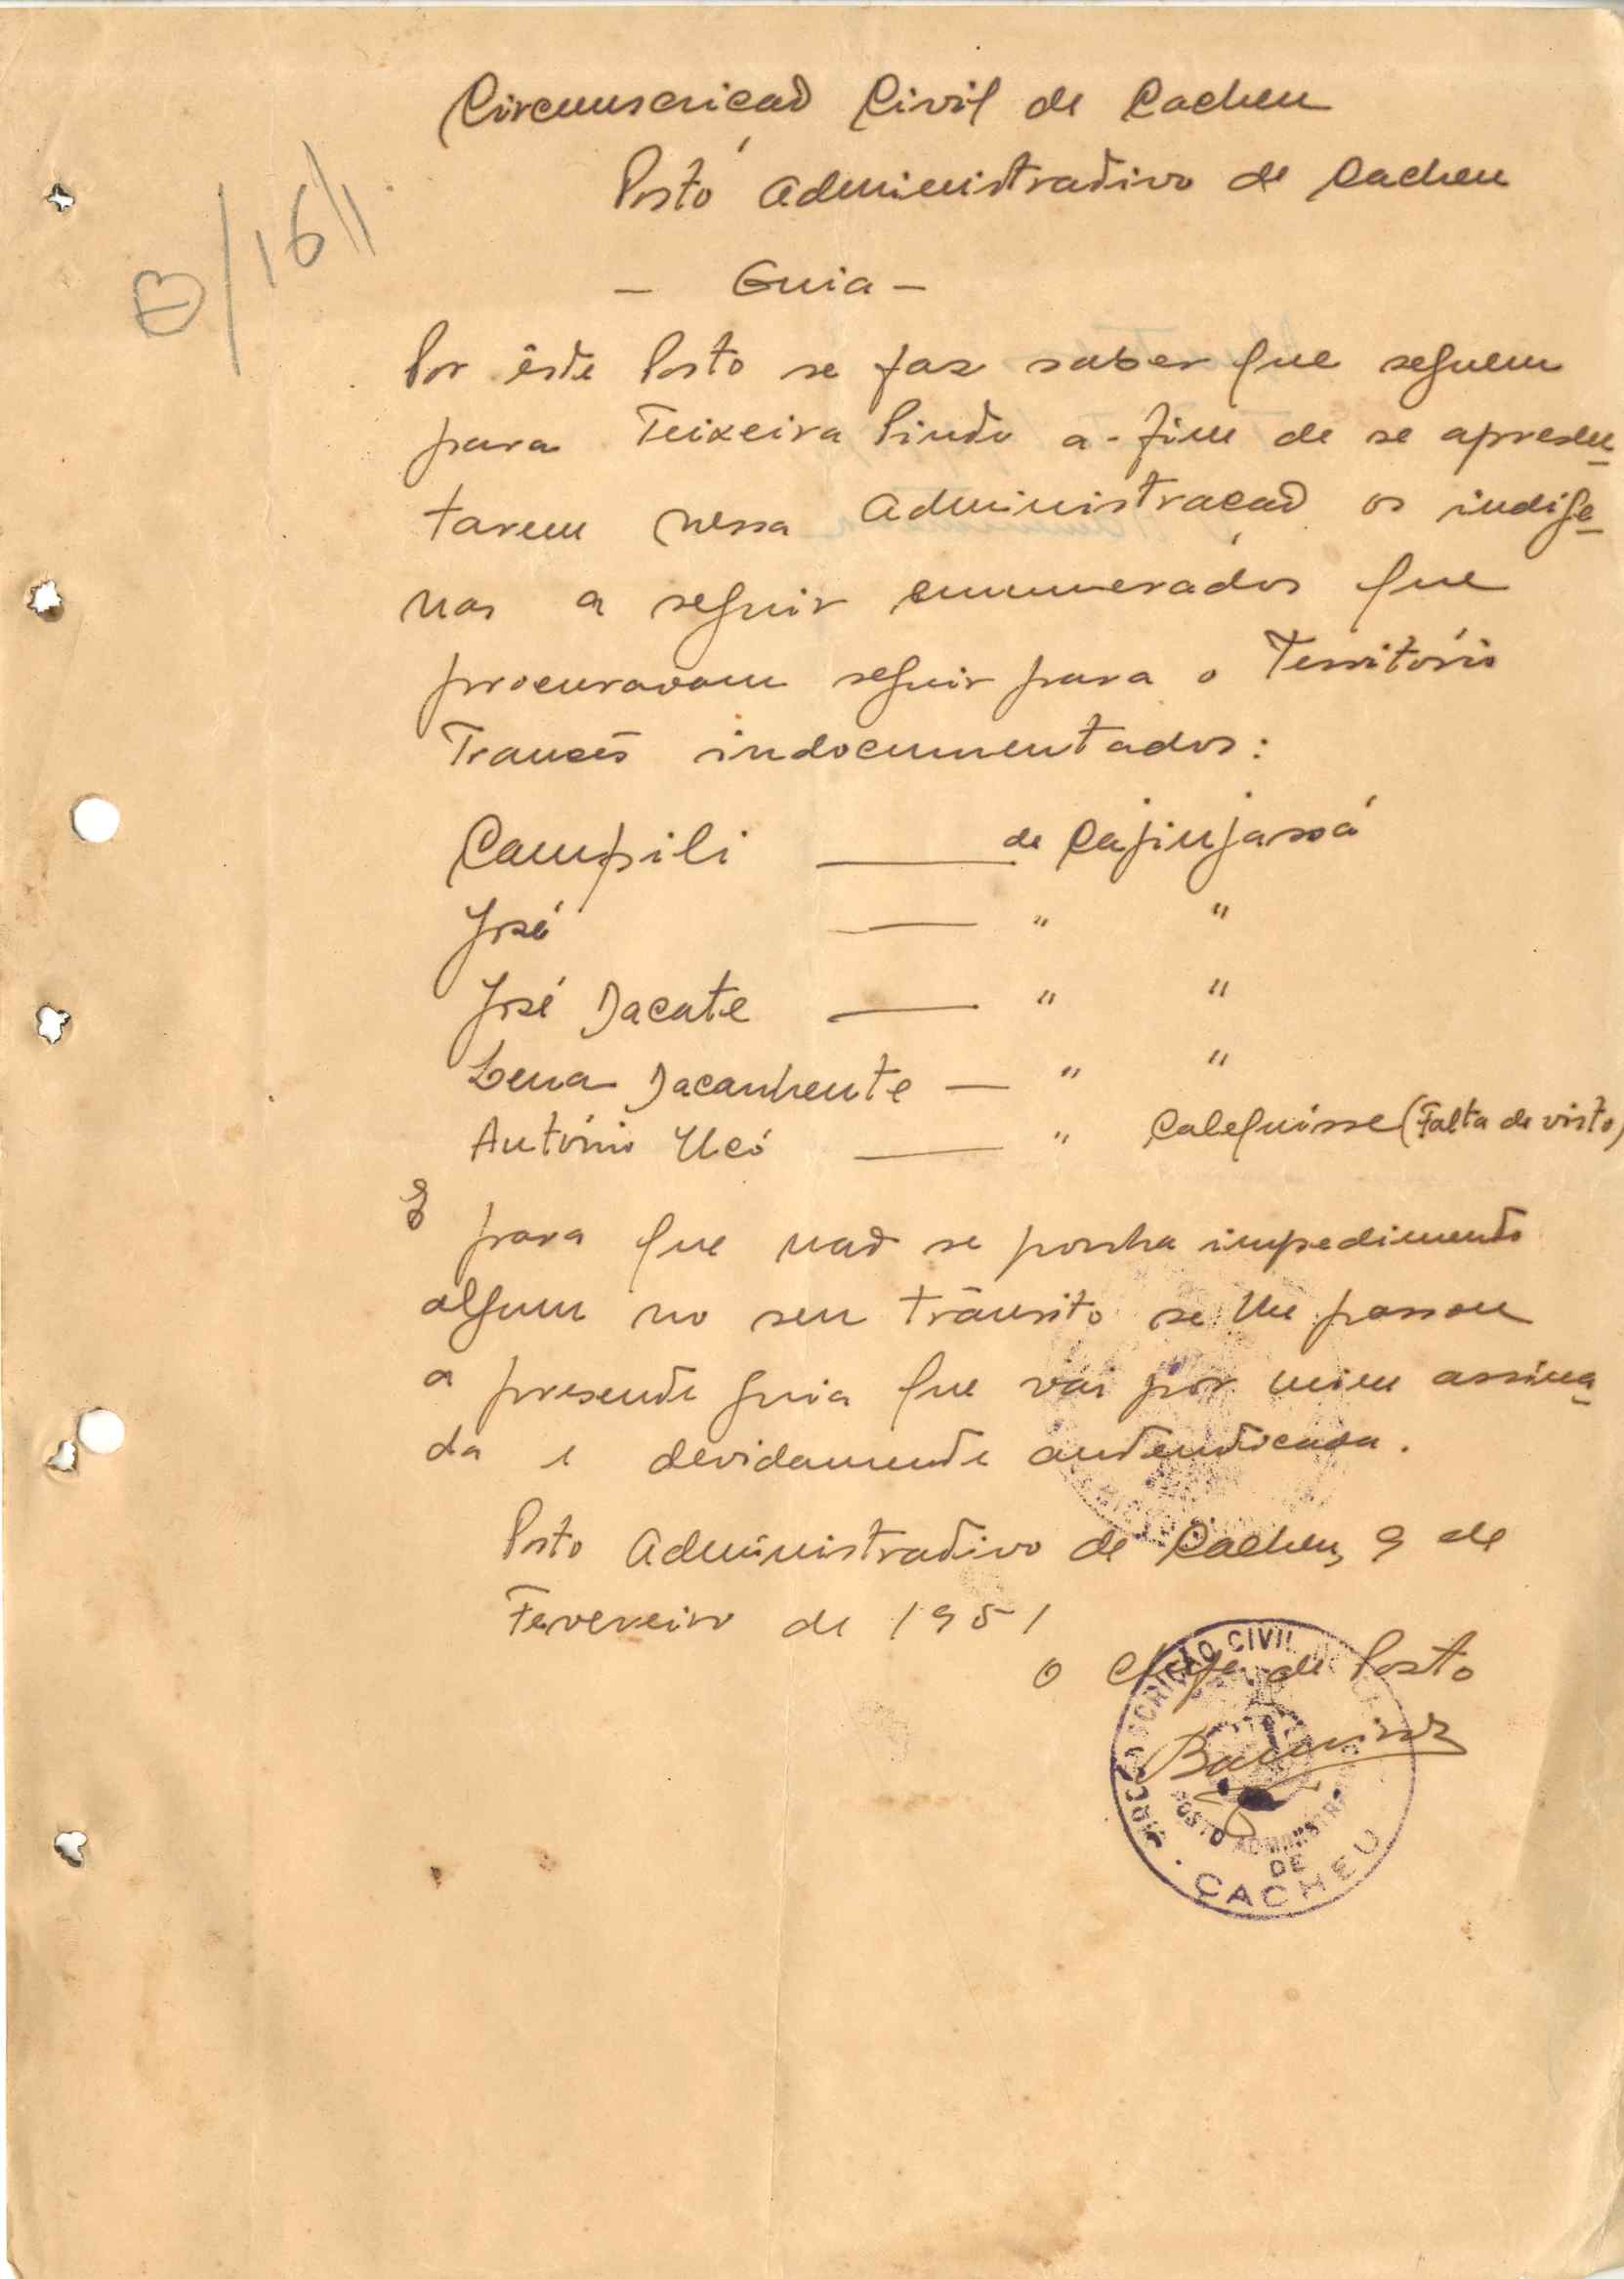 B/16/1
Circunscrição Civil de Cacheu
Posto Administrativo de Cacheu
- Guia -
Por êste Posto se faz saber que seguem
para Teixeira Pinto a-fim de se apresen-
tarem nessa Administração os indíge-
nas a seguir enumerados que
procuravam seguir para o Território
Francês indocumentados:
Campili —— de Cajinjassá
José —— " "
José Dacate —— " "
Lena Dacanhente — " "
António Ucó —— " Calequisse (Falta de visto)
E para que não se ponha impedimento
algum no seu trânsito se lhe passou
a presente guia que vai por mim assina-
da e devidamente autenticada.
Posto Administrativo de Cacheu, 9 de
Fevereiro de 1951
O Chefe de Posto
CIRCUNSCRIÇÃO CIVIL
POSTO ADMINISTRATIVO
DE
CACHEU